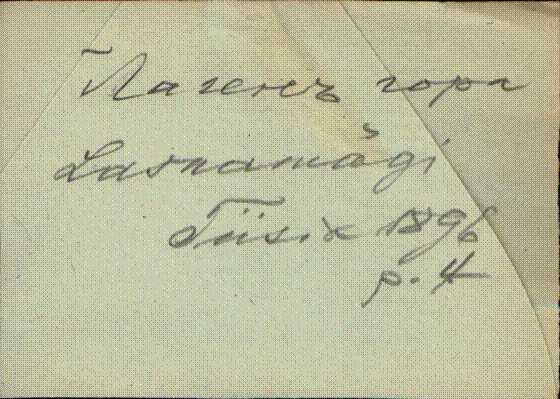 Лагенъ гора
Lasnamägi
Tiisik 1896
p. 4